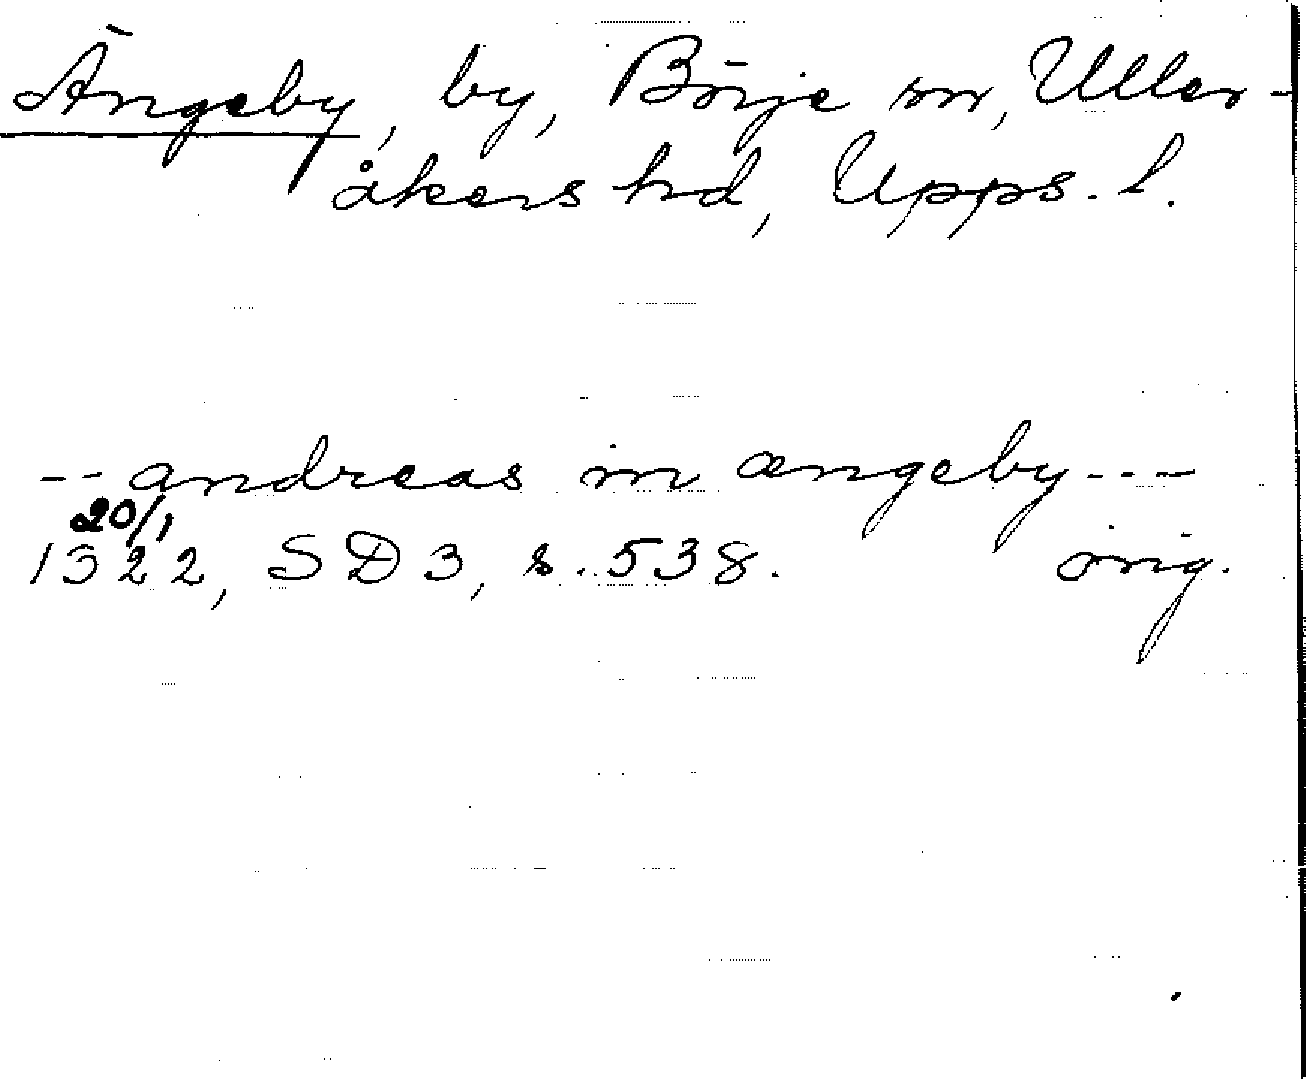 Ängeby, by, Börje sn, Uller-
åkers hd, Upps. l.
-- andreas in ængeby ---
20/1
1322, SD 3, s. 538. orig.